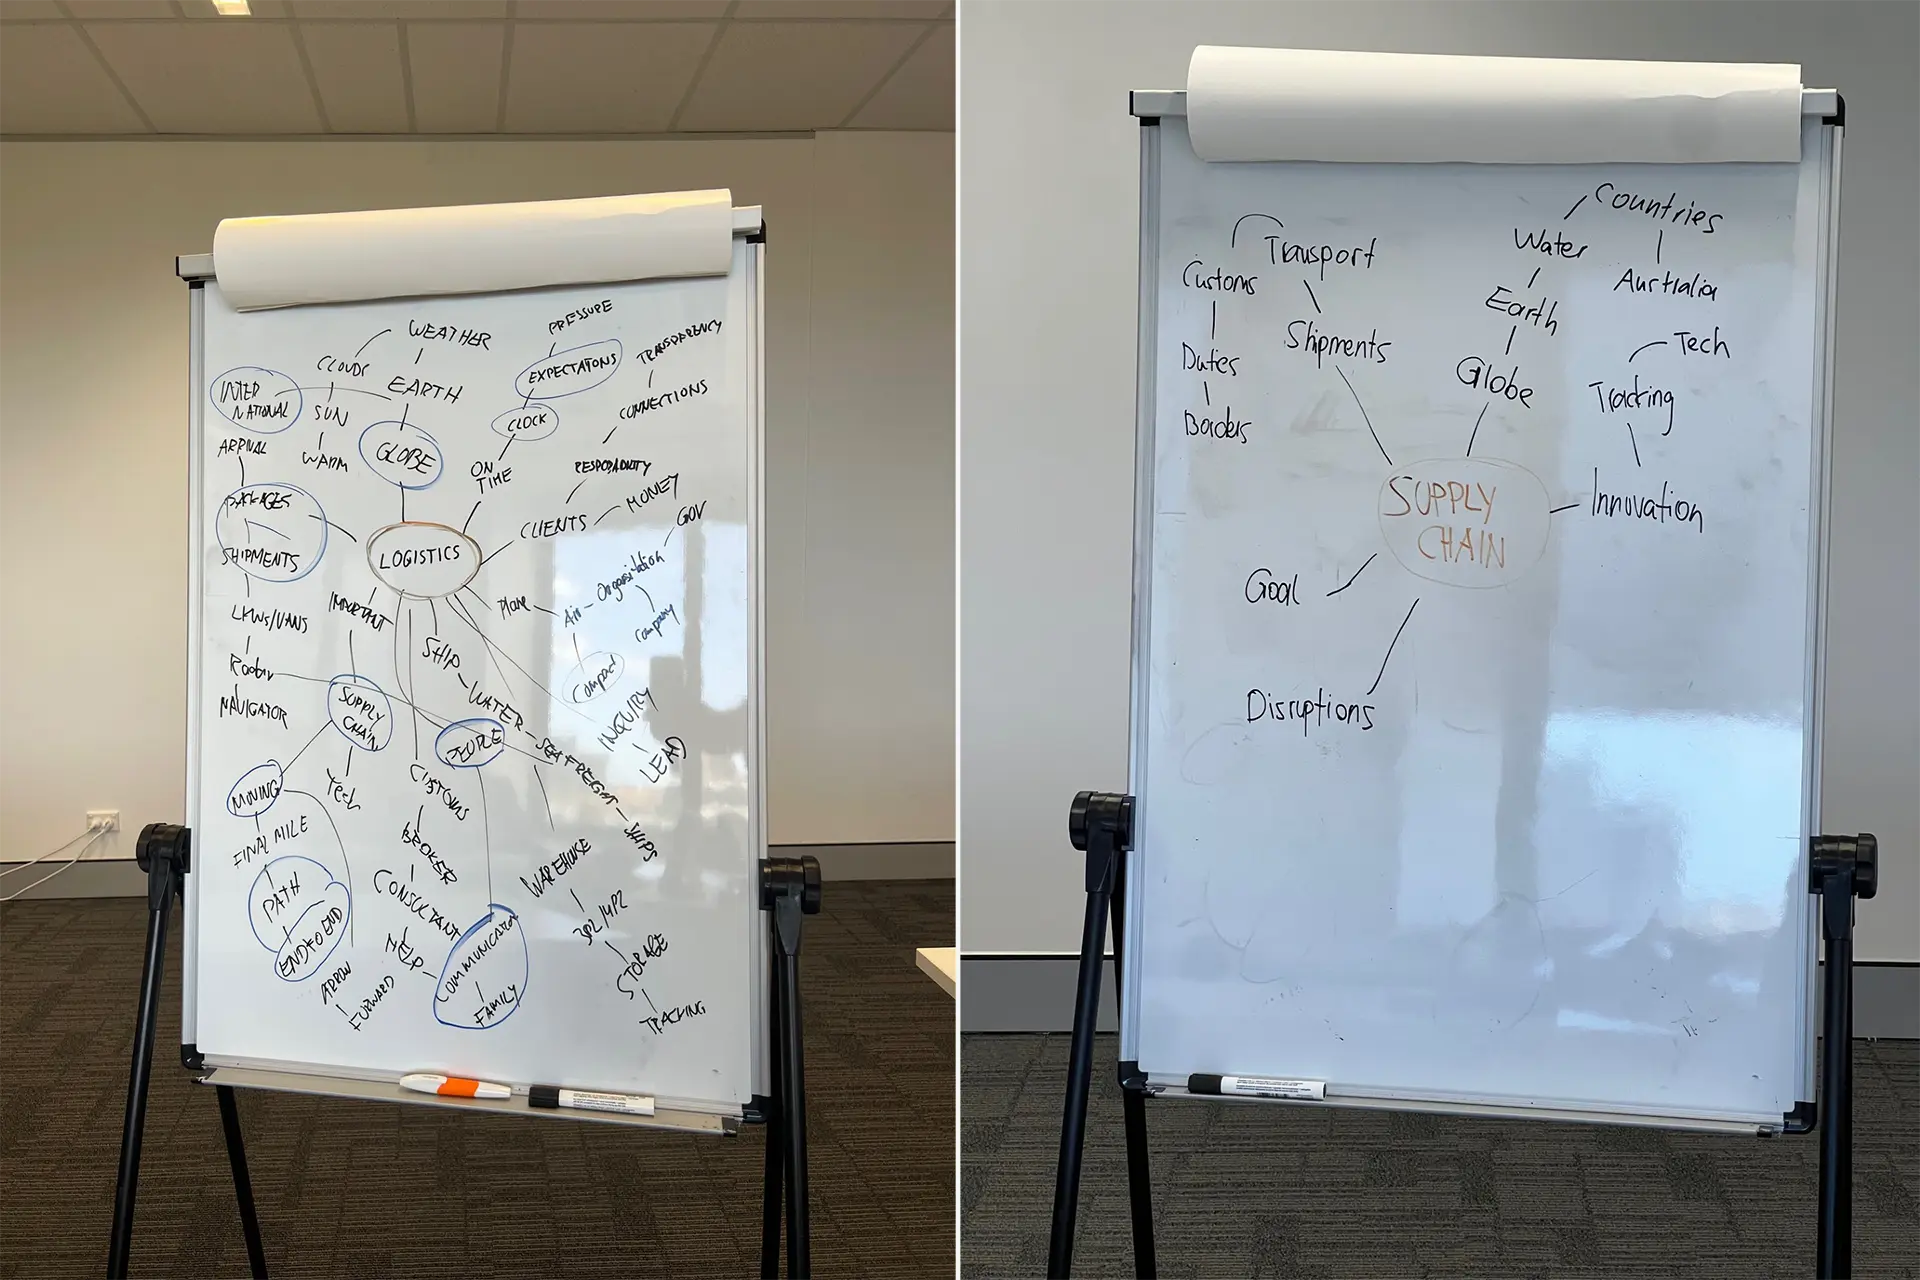 PRESSURE
WEATHER
TRANSPARENCY
CLOUDS
EXPECTATIONS
EARTH
INTER
NATIONAL
SUN
CONNECTIONS
CLOCK
ARRIVAL
WARM
GLOBE
ON
TIME
PACKAGES
CLIENTS
MONEY
GOV
LOGISTICS
SHIPMENTS
Plane
Air
Organisation
Company
IMPORTANT
LKWs/VANS
SHIP
Compact
NAVIGATOR
SUPPLY
CHAIN
WATER
PEOPLE
SEA FREIGHT
SHIPS
INQUIRY
LEAD
MOVING
Tech
CUSTOMS
FINAL MILE
BROKER
WAREHOUSE
PATH
CONSULTANT
3PL/4PL
END TO END
HELP
COMMUNICATION
STORAGE
ARROW
FORWARD
FAMILY
TRACKING
Countries
Transport
Water
Customs
Australia
Earth
Shipments
Tech
Duties
Globe
Tracking
Borders
SUPPLY
CHAIN
Innovation
Goal
Disruptions